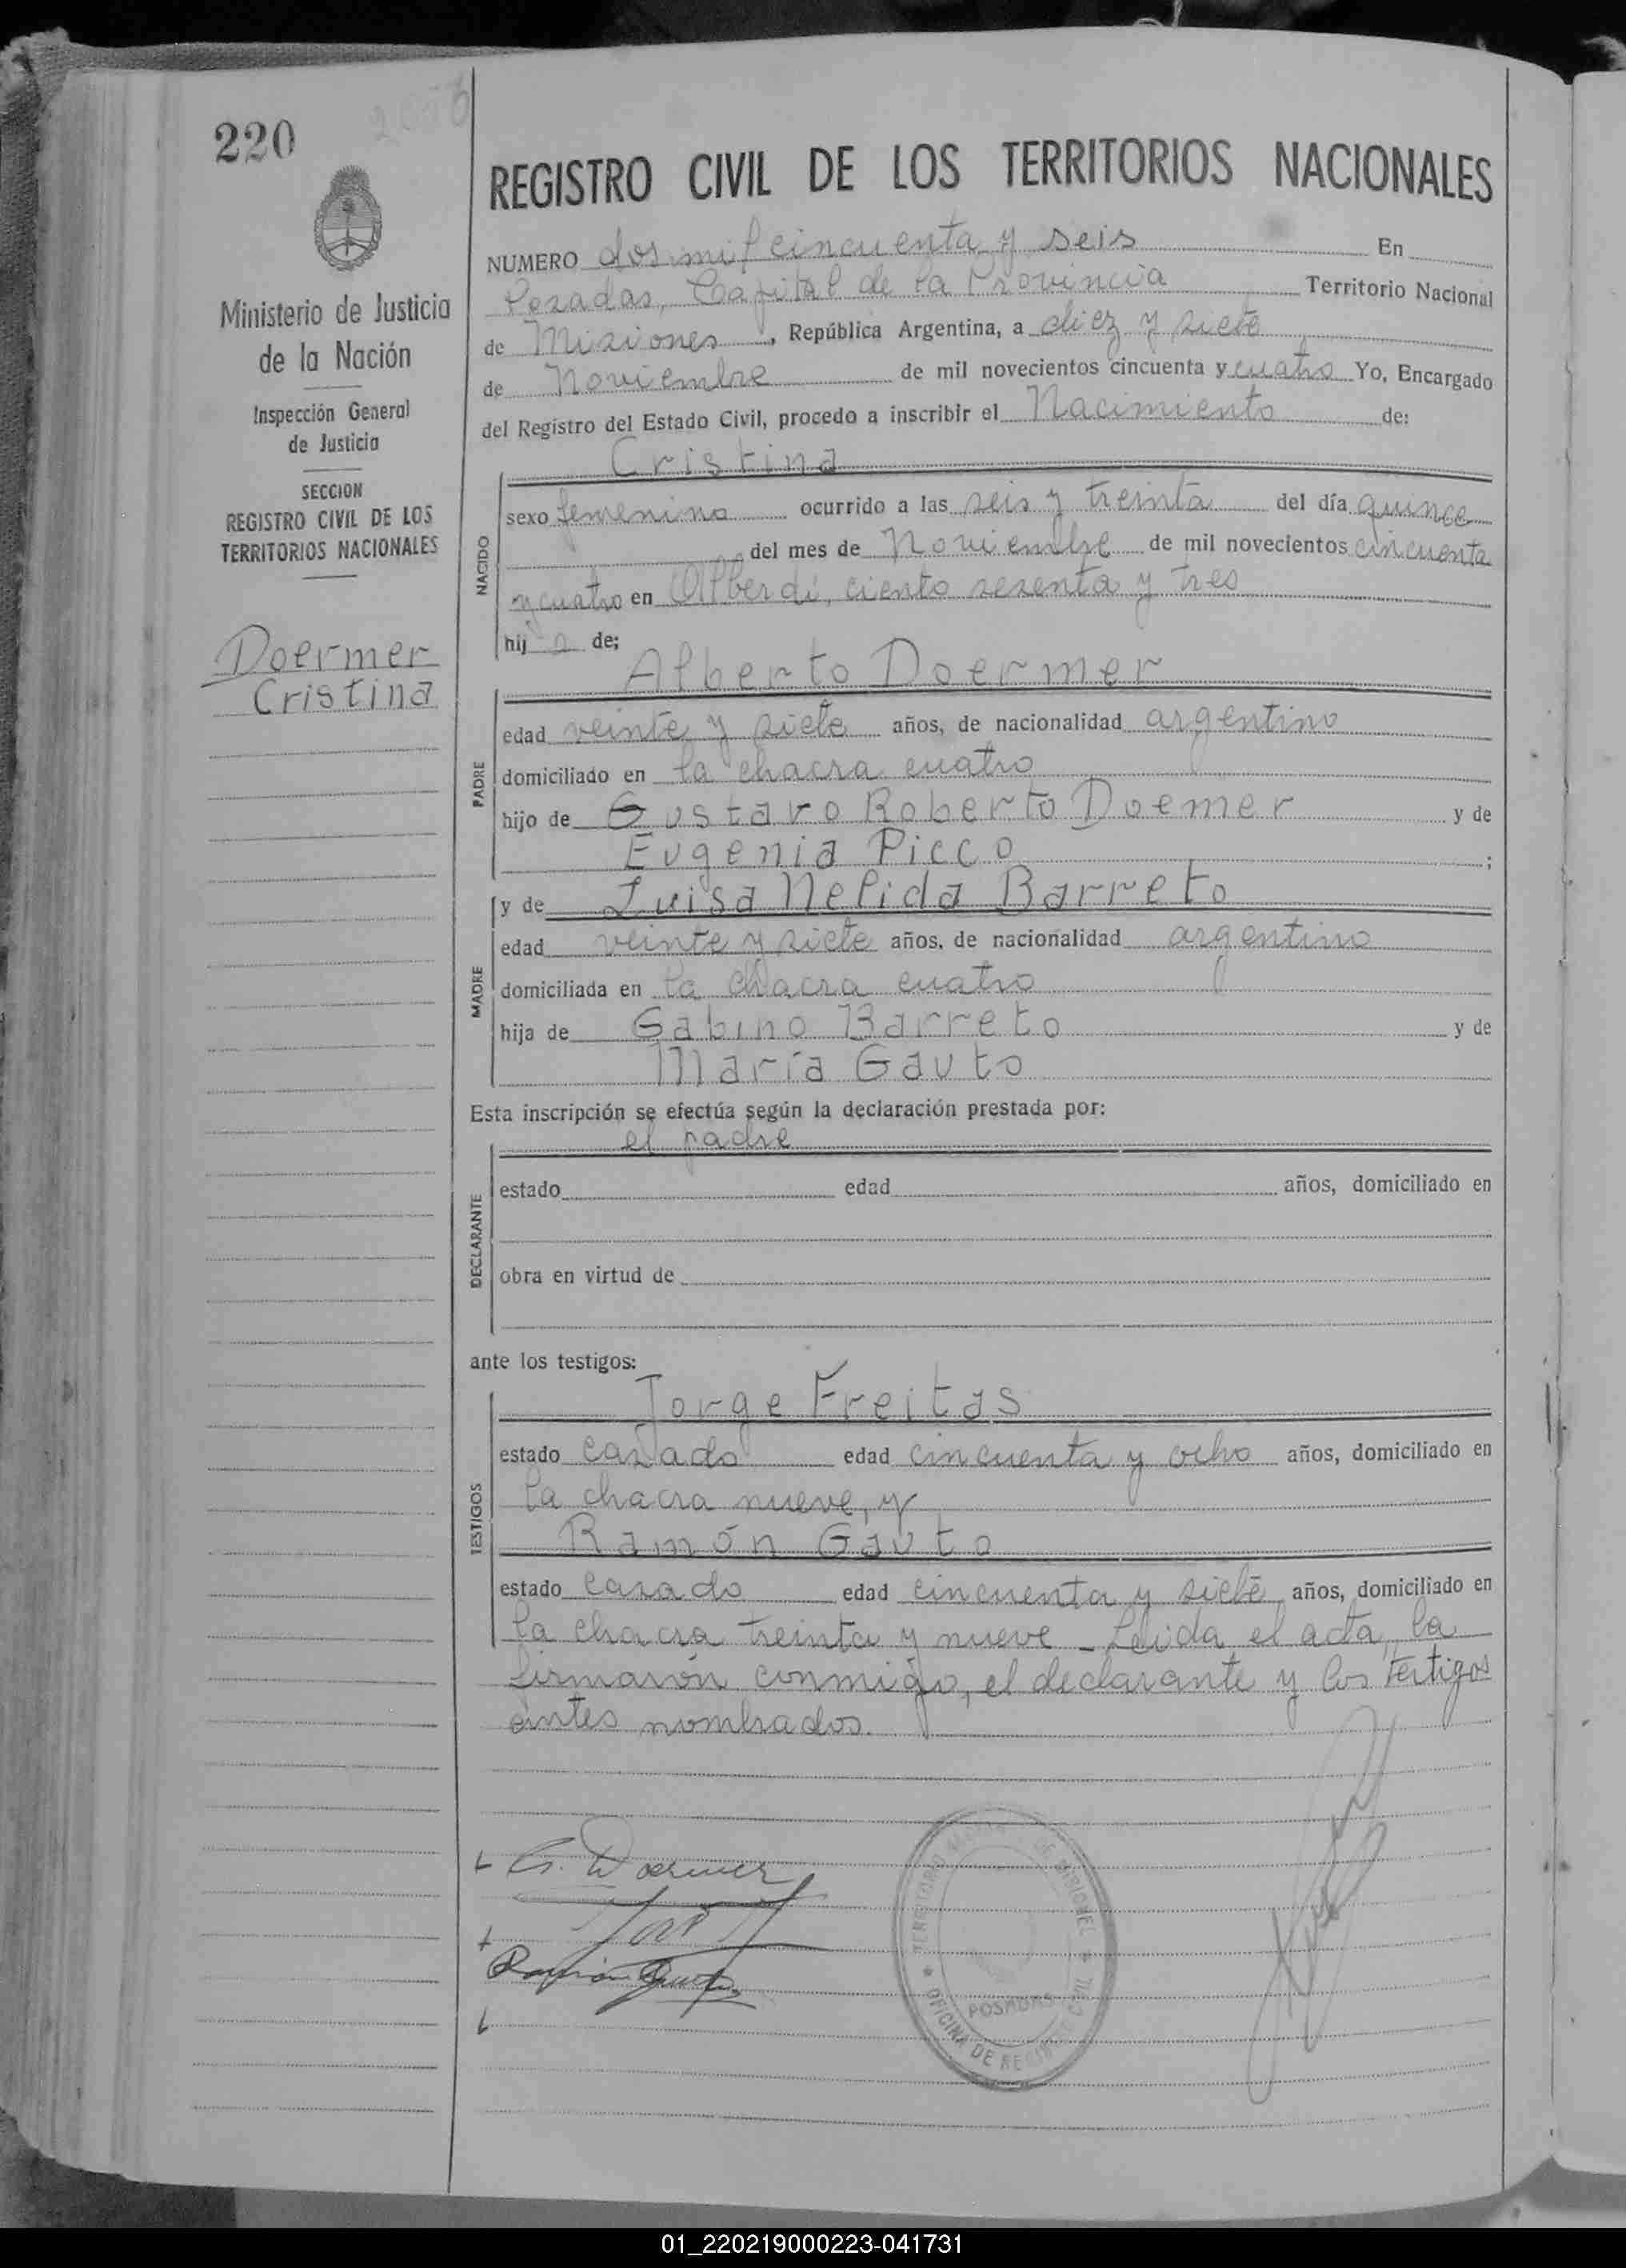 220
2056
Ministerio de Justicia
de la Nación
Inspección General
de Justicia
SECCION
REGISTRO CIVIL DE LOS
TERRITORIOS NACIONALES
Doermer
Cristina
REGISTRO CIVIL DE LOS TERRITORIOS NACIONALES
NUMERO dos mil cincuenta y seis En
Posadas, Capital de la Provincia Territorio Nacional
de Misiones, República Argentina, a diez y siete
de Noviembre de mil novecientos cincuenta y cuatro Yo, Encargado
del Registro del Estado Civil, procedo a inscribir el Nacimiento de:
Cristina
NACIDO
sexo femenino ocurrido a las seis y treinta del día quince
del mes de Noviembre de mil novecientos cincuenta
y cuatro en Alberdi, ciento sesenta y tres
hij a de;
Alberto Doermer
PADRE
edad veinte y siete años, de nacionalidad argentino
domiciliado en la chacra cuatro
hijo de Gustavo Roberto Doemer y de
Eugenia Picco ;
y de Luisa Nelida Barreto
MADRE
edad veinte y siete años, de nacionalidad argentino
domiciliada en la chacra cuatro
hija de Gabino Barreto y de
María Gauto
Esta inscripción se efectúa según la declaración prestada por:
el padre
DECLARANTE
estado edad años, domiciliado en
obra en virtud de
ante los testigos:
Jorge Freitas
TESTIGOS
estado casado edad cincuenta y ocho años, domiciliado en
la chacra nueve, y
Ramón Gauto
estado casado edad cincuenta y siete años, domiciliado en
la chacra treinta y nueve - Leida el acta, la
firmarón conmigo, el declarante y los testigos
antes nombrados.
G. Doermer
Ramón Gauto
OFICINA DE REGISTRO CIVIL
POSADAS
01_220219000223-041731